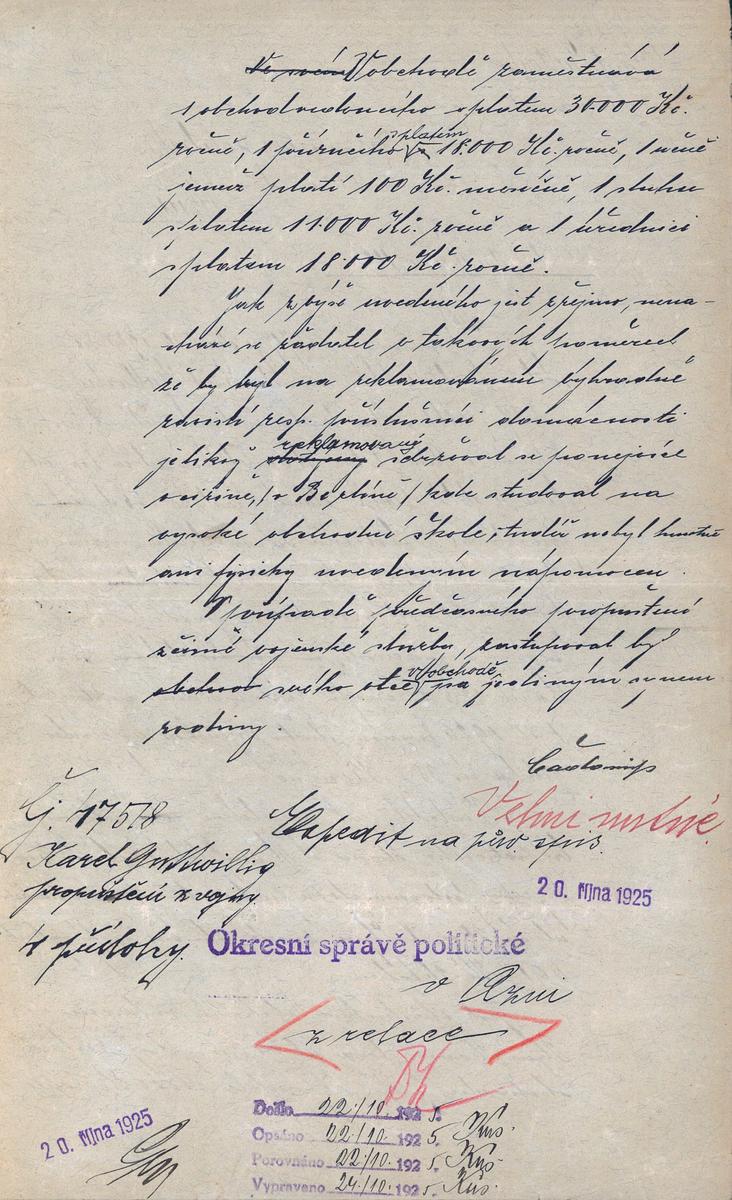 V obchodě zaměstnává
1 obchodvedoucího s platem 30.000 Kč.
ročně, 1 příručího s platem 18.000 Kč. ročně, 1 učně
jemuž platí 100 Kč. měsíčně, 1 sluhu
s platem 11.000 Kč. ročně a 1 úřednici
s platem 18.000 Kč. ročně.
Jak z výše uvedeného jest zřejmo, nena-
chází se žadatel v takových poměrech
že by byl na reklamovaném výhradně
závislý resp. příslušníci domácnosti
jelikož reklamovaný zdržoval se ponejvíce
v cizině, (v Berlíně) kde studoval na
vysoké obchodní škole, tudíž nebyl hmotně
ani fysicky uvedeným nápomocen.
V případě předčasného propuštění
z činné vojenské služby, zastupoval by
svého otce v obchodě, jsa jediným synem
rodiny.
Velmi nutné.
Čj. 47518
Expedit na pův. spis.
Karel Guttwillig
propuštění z vojny
20. října 1925
4 přílohy.
Okresní správě politické
v
z relace
20. října 1925
Došlo 22/10. 1925.
Opsáno 22/10. 1925.
Porovnáno 22/10. 1925.
Vypraveno 24/10. 1925.